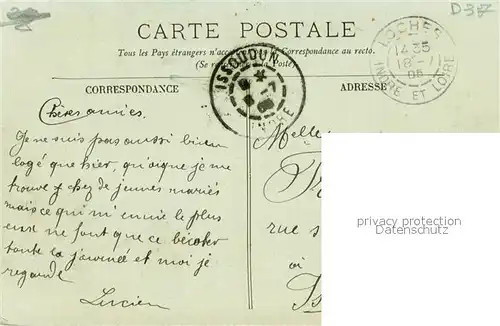 D 37
CARTE POSTALE
Tous les Pays étrangers n'acc Correspondance au recto.
(Se re Poste)
CORRESPONDANCE
ADRESSE
ISSOUDUN
INDRE
LOCHES
1435
18 - 11
05
INDRE ET LOIRE
Chères amies.
Je ne suis pas aussi bien
logé que hier, quoique je me
trouve chez de jeunes mariés
mais ce qui m'ennuie le plus
eux ne font que ce bécoter
toute la journée et moi je
regarde
Lucien
Melle
rue
à
privacy protection
Datenschutz